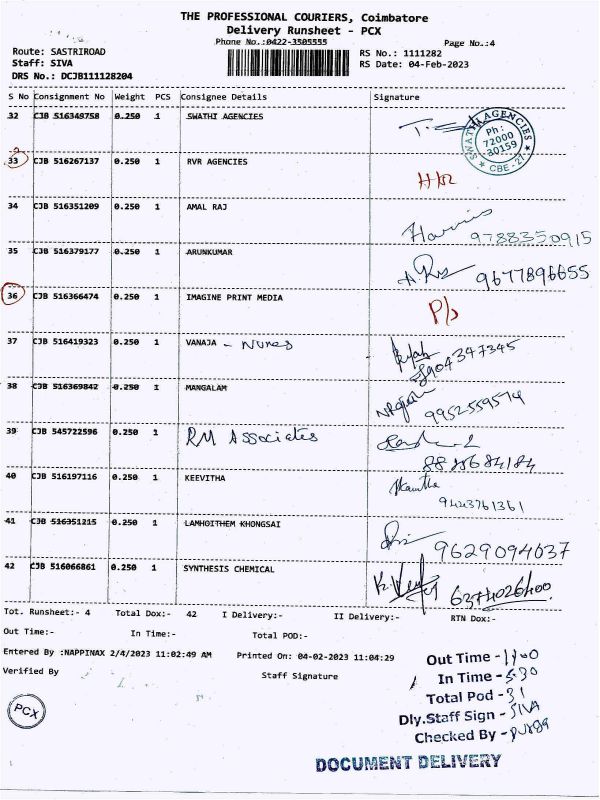 THE PROFESSIONAL COURIERS, Coimbatore
Delivery Runsheet - PCX
Phone No.:0422-3505555
Page No.:4
Route: SASTRIROAD
RS No.: 1111282
Staff: SIVA
RS Date: 04-Feb-2023
DRS No.: DCJB111128204
S No Consignment No Weight PCS Consignee Details Signature
32 CJB 516349758 0.250 1 SWATHI AGENCIES
SWATHI AGENCIES Ph: 72000 30159 CBE-27
33 CJB 516267137 0.250 1 RVR AGENCIES
34 CJB 516351209 0.250 1 AMAL RAJ
Harris 9788350915
35 CJB 516379177 0.250 1 ARUNKUMAR
9677896655
36 CJB 516366474 0.250 1 IMAGINE PRINT MEDIA
37 CJB 516419323 0.250 1 VANAJA - Nures
8904347345
38 CJB 516369842 0.250 1 MANGALAM
9952559574
39 CJB 545722596 0.250 1 RM Associates
40 CJB 516197116 0.250 1 KEEVITHA
9443761361
41 CJB 516351215 0.250 1 LAMHOITHEM KHONGSAI
9629094637
42 CJB 516066861 0.250 1 SYNTHESIS CHEMICAL
6374026400
Tot. Runsheet:- 4 Total Dox:- 42 I Delivery:- II Delivery:- RTN Dox:-
Out Time:- In Time:- Total POD:-
Entered By :NAPPINAX 2/4/2023 11:02:49 AM Printed On: 04-02-2023 11:04:29
Verified By Staff Signature
PCX
Out Time - 1100
In Time - 5.30
Total Pod - 31
Dly.Staff Sign - SIVA
Checked By -
DOCUMENT DELIVERY